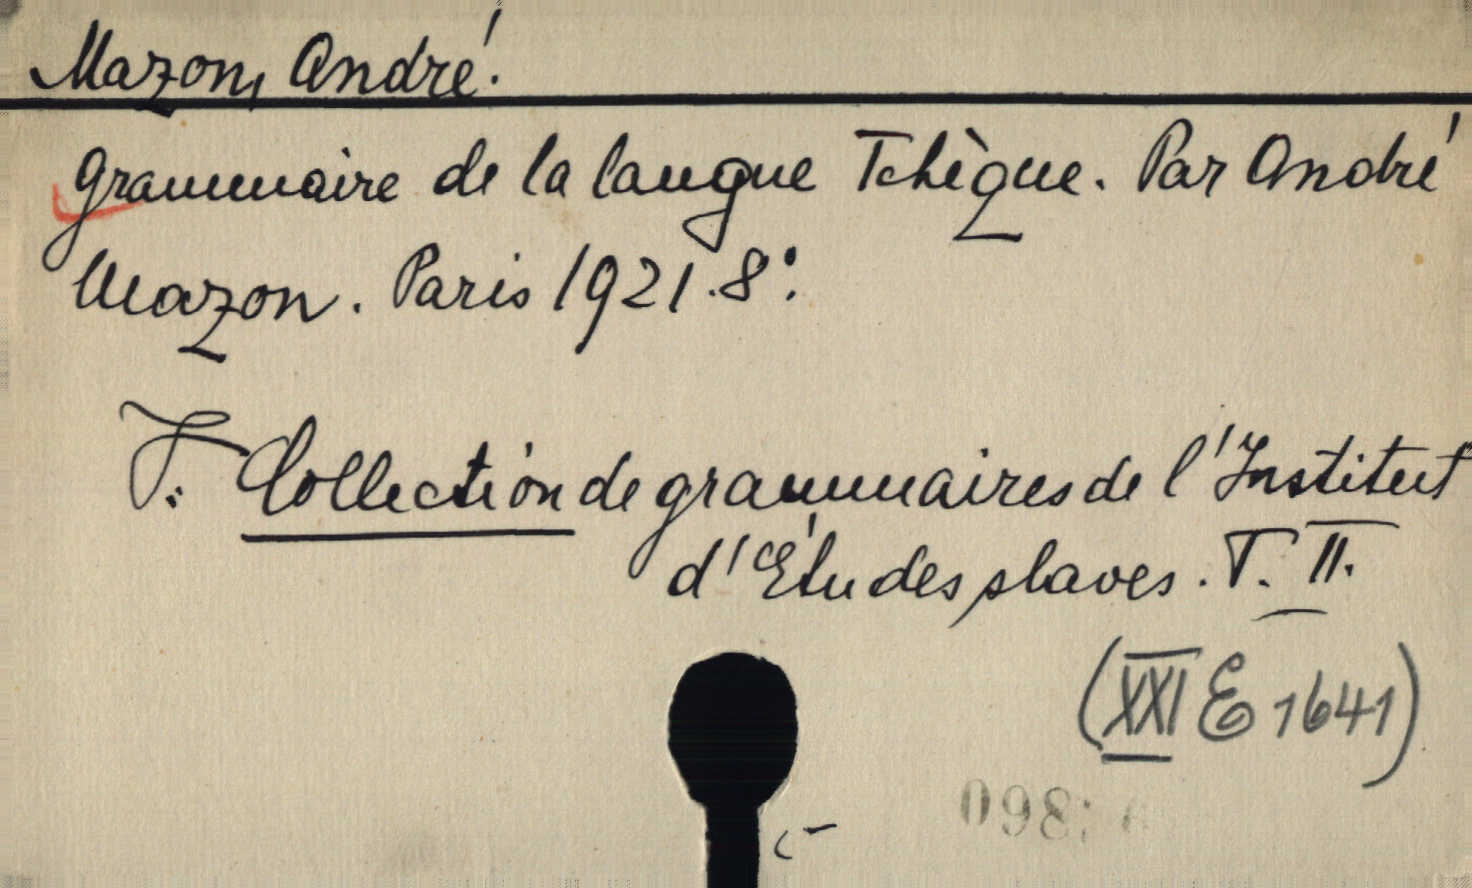 Mazon, André.
Grammaire de la langue Tchèque. Par André
Mazon. Paris 1921. 8°.
F: Collection de grammaires de l'Institut
d'Études slaves. T. II.
(XXI E 1641)